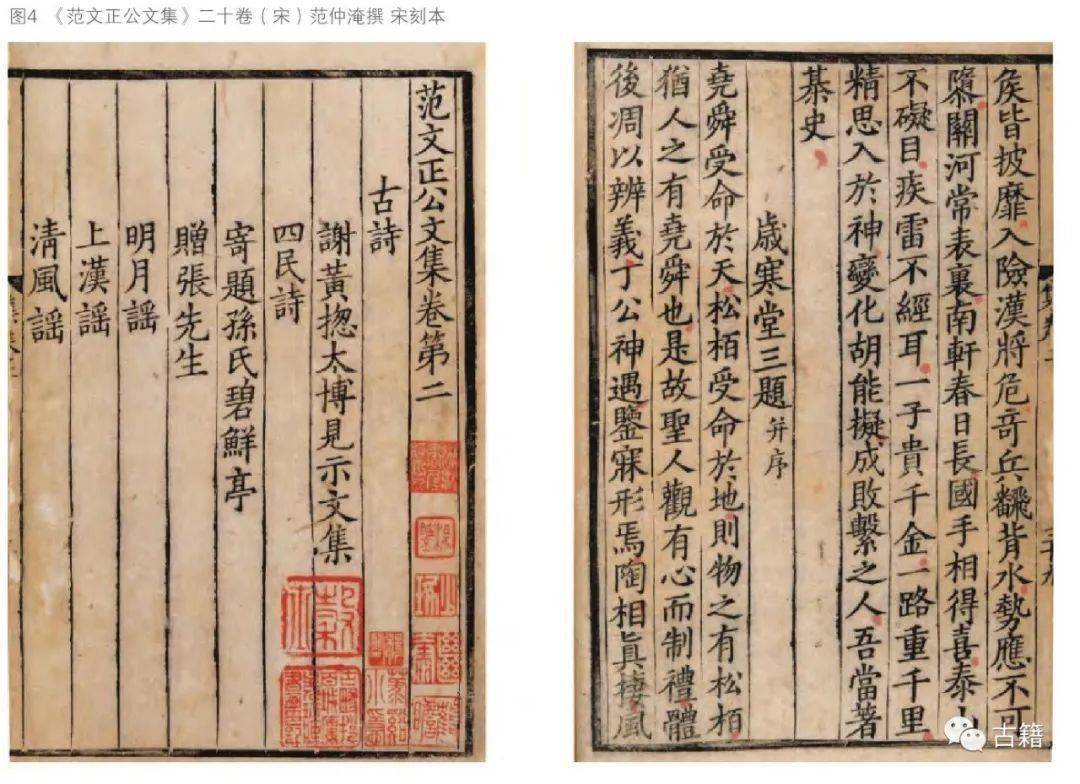 图4 《范文正公文集》二十卷（宋）范仲淹撰 宋刻本
范文正公文集卷第二
古詩
謝黃揔太博見示文集
四民詩
寄題孫氏碧鮮亭
贈張先生
明月謠
上漢謠
清風謠
侯皆披靡入險漢將危奇兵飜背水勢應不可
隳關河常表裏南軒春日長國手相得喜泰山
不礙目疾雷不經耳一子貴千金一路重千里
精思入於神變化胡能擬成敗繫之人吾當著
棊史
歲寒堂三題 并序
堯舜受命於天松栢受命於地則物之有松栢
猶人之有堯舜也是故聖人觀有心而制禮體
後凋以辨義丁公神遇鑒寐形焉陶相眞棲風
古籍